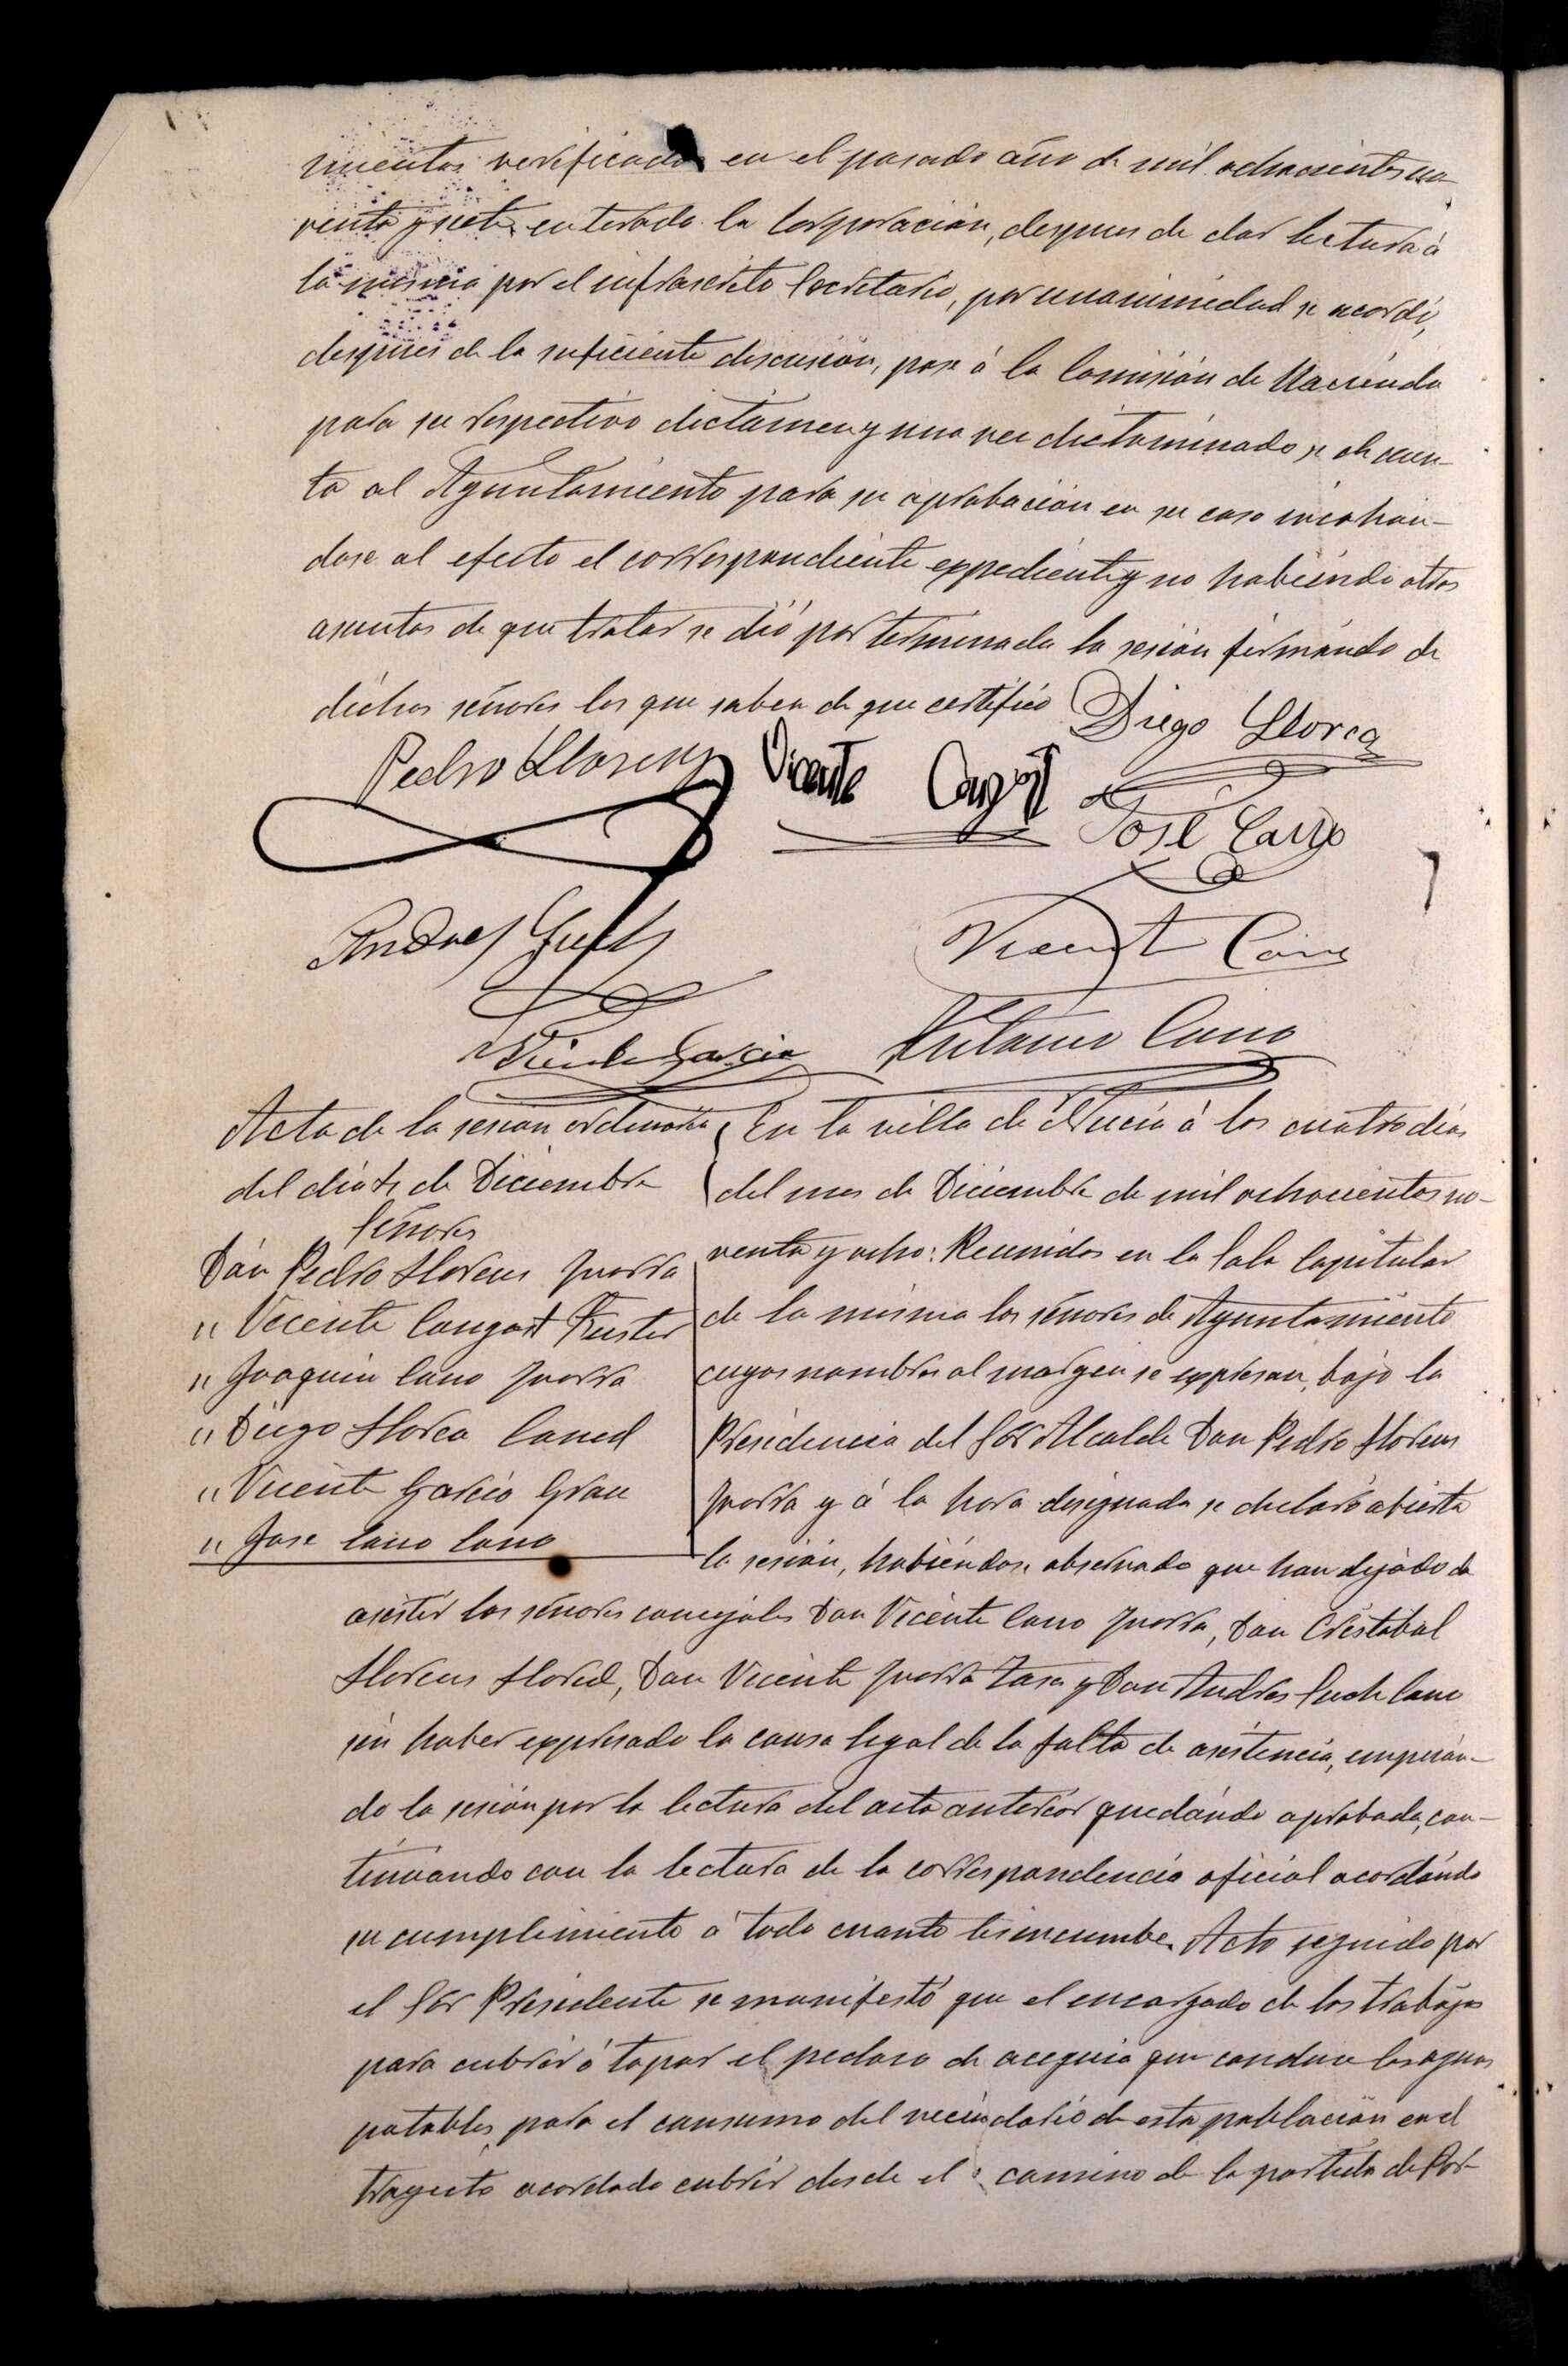 mientos verificados en el pasado año de mil ochocientos no-
venta y siete, enterada la Corporación, despues de dar lectura á
la misma por el infrascrito Secretario, por unanimidad se acordó,
despues de la suficiente discusión, pase á la Comisión de Hacienda
para su respectivo dictamen y una vez dictaminado se dé cuen-
ta al Ayuntamiento para su aprobación en su caso incohan-
dose al efecto el correspondiente expediente y no habiendo otros
asuntos de que tratar se dió por terminada la sesión firmando de
dichos señores los que saben de que certifico Diego Llorca
Pedro Llorens Vicente Cangost
José Cano
Andres Vicente Cano
Vicente Garcia Antonio Cano
Acta de la sesion ordinaria
del dia 4 de Diciembre
Señores
Dón Pedro Llorens Yvorra
" Vicente Cangost Fuster
" Joaquin Cano Yvorra
" Diego Llorca Caned
" Vicente García Grau
" Jose Cano Cano
En la villa de Nucia á los cuatro dias
del mes de Diciembre de mil ochocientos no-
venta y ocho: Reunidos en la Sala Capitular
de la misma los señores de Ayuntamiento
cuyos nombres al margen se expresan, bajo la
Presidencia del Sor Alcalde Don Pedro Llorens
Yvorra y á la hora designada se declaró abierta
la sesión, habiéndose observado que han dejado de
asistir los señores concejales Don Vicente Cano Yvorra, Don Cristobal
Llorens Llored, Don Vicente Yvorra Zasa y Don Andres Such Cano
sin haber expresado la causa legal de la falta de asistencia, empezán-
do la sesión por la lectura del acta anterior quedándo aprobada, con-
tinuando con la lectura de la correspondencia oficial acordándo
su cumplimiento á todo cuanto les incumbe. Acto seguido por
el Sor Presidente se manifestó que el encargado de los trabajos
para cubrir ó tapar el pedaso de acequia que conduce las aguas
potables para el consumo del vecindario de esta población en el
trayecto acordado cubrir desde el camino de la partida de Por-